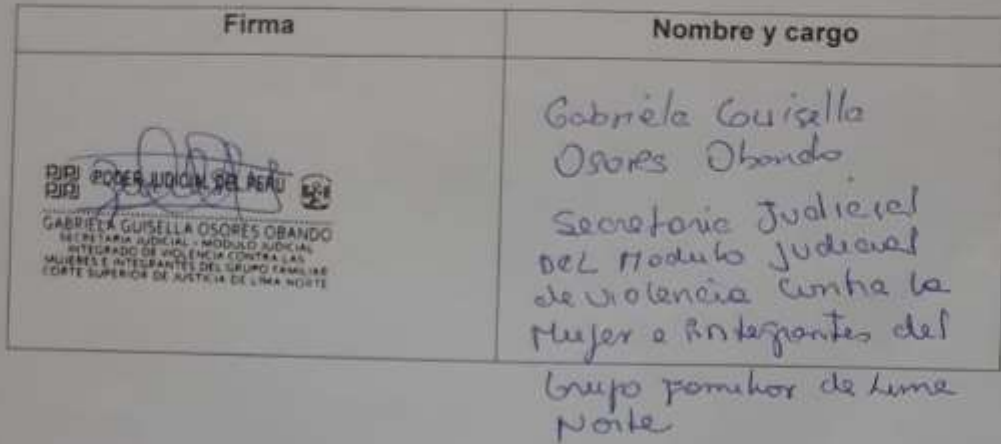 Firma
Nombre y cargo
PJPJ PODER JUDICIAL DEL PERÚ
PJPJ
GABRIELA GUISELLA OSORES OBANDO
SECRETARIA JUDICIAL - MODULO JUDICIAL
INTEGRADO DE VIOLENCIA CONTRA LAS
MUJERES E INTEGRANTES DEL GRUPO FAMILIAR
CORTE SUPERIOR DE JUSTICIA DE LIMA NORTE
Gabriela Guisella
Osores Obando
Secretaria Judicial
DEL Modulo Judicial
de violencia contra la
Mujer e Integrantes del
Grupo familiar de Lima
Norte